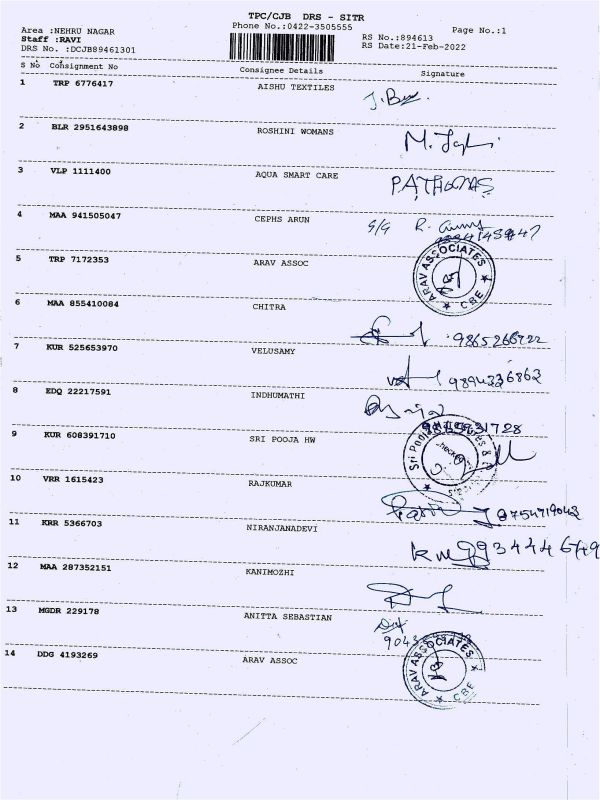 TPC/CJB DRS - SITR
Phone No.:0422-3505555
Page No.:1
Area :NEHRU NAGAR
Staff :RAVI
DRS No. :DCJB89461301
RS No.:894613
RS Date:21-Feb-2022
S No Consignment No Consignee Details Signature
1 TRP 6776417 AISHU TEXTILES
2 BLR 2951643898 ROSHINI WOMANS
3 VLP 1111400 AQUA SMART CARE
4 MAA 941505047 CEPHS ARUN
5 TRP 7172353 ARAV ASSOC ARAV ASSOCIATES CBE
6 MAA 855410084 CHITRA
7 KUR 525653970 VELUSAMY 9894236863
8 EDQ 22217591 INDHUMATHI
9 KUR 608391710 SRI POOJA HW Sri Pooja
10 VRR 1615423 RAJKUMAR 8754719043
11 KRR 5366703 NIRANJANADEVI
12 MAA 287352151 KANIMOZHI
13 MGDR 229178 ANITTA SEBASTIAN
14 DDG 4193269 ARAV ASSOC ARAV ASSOCIATES CBE